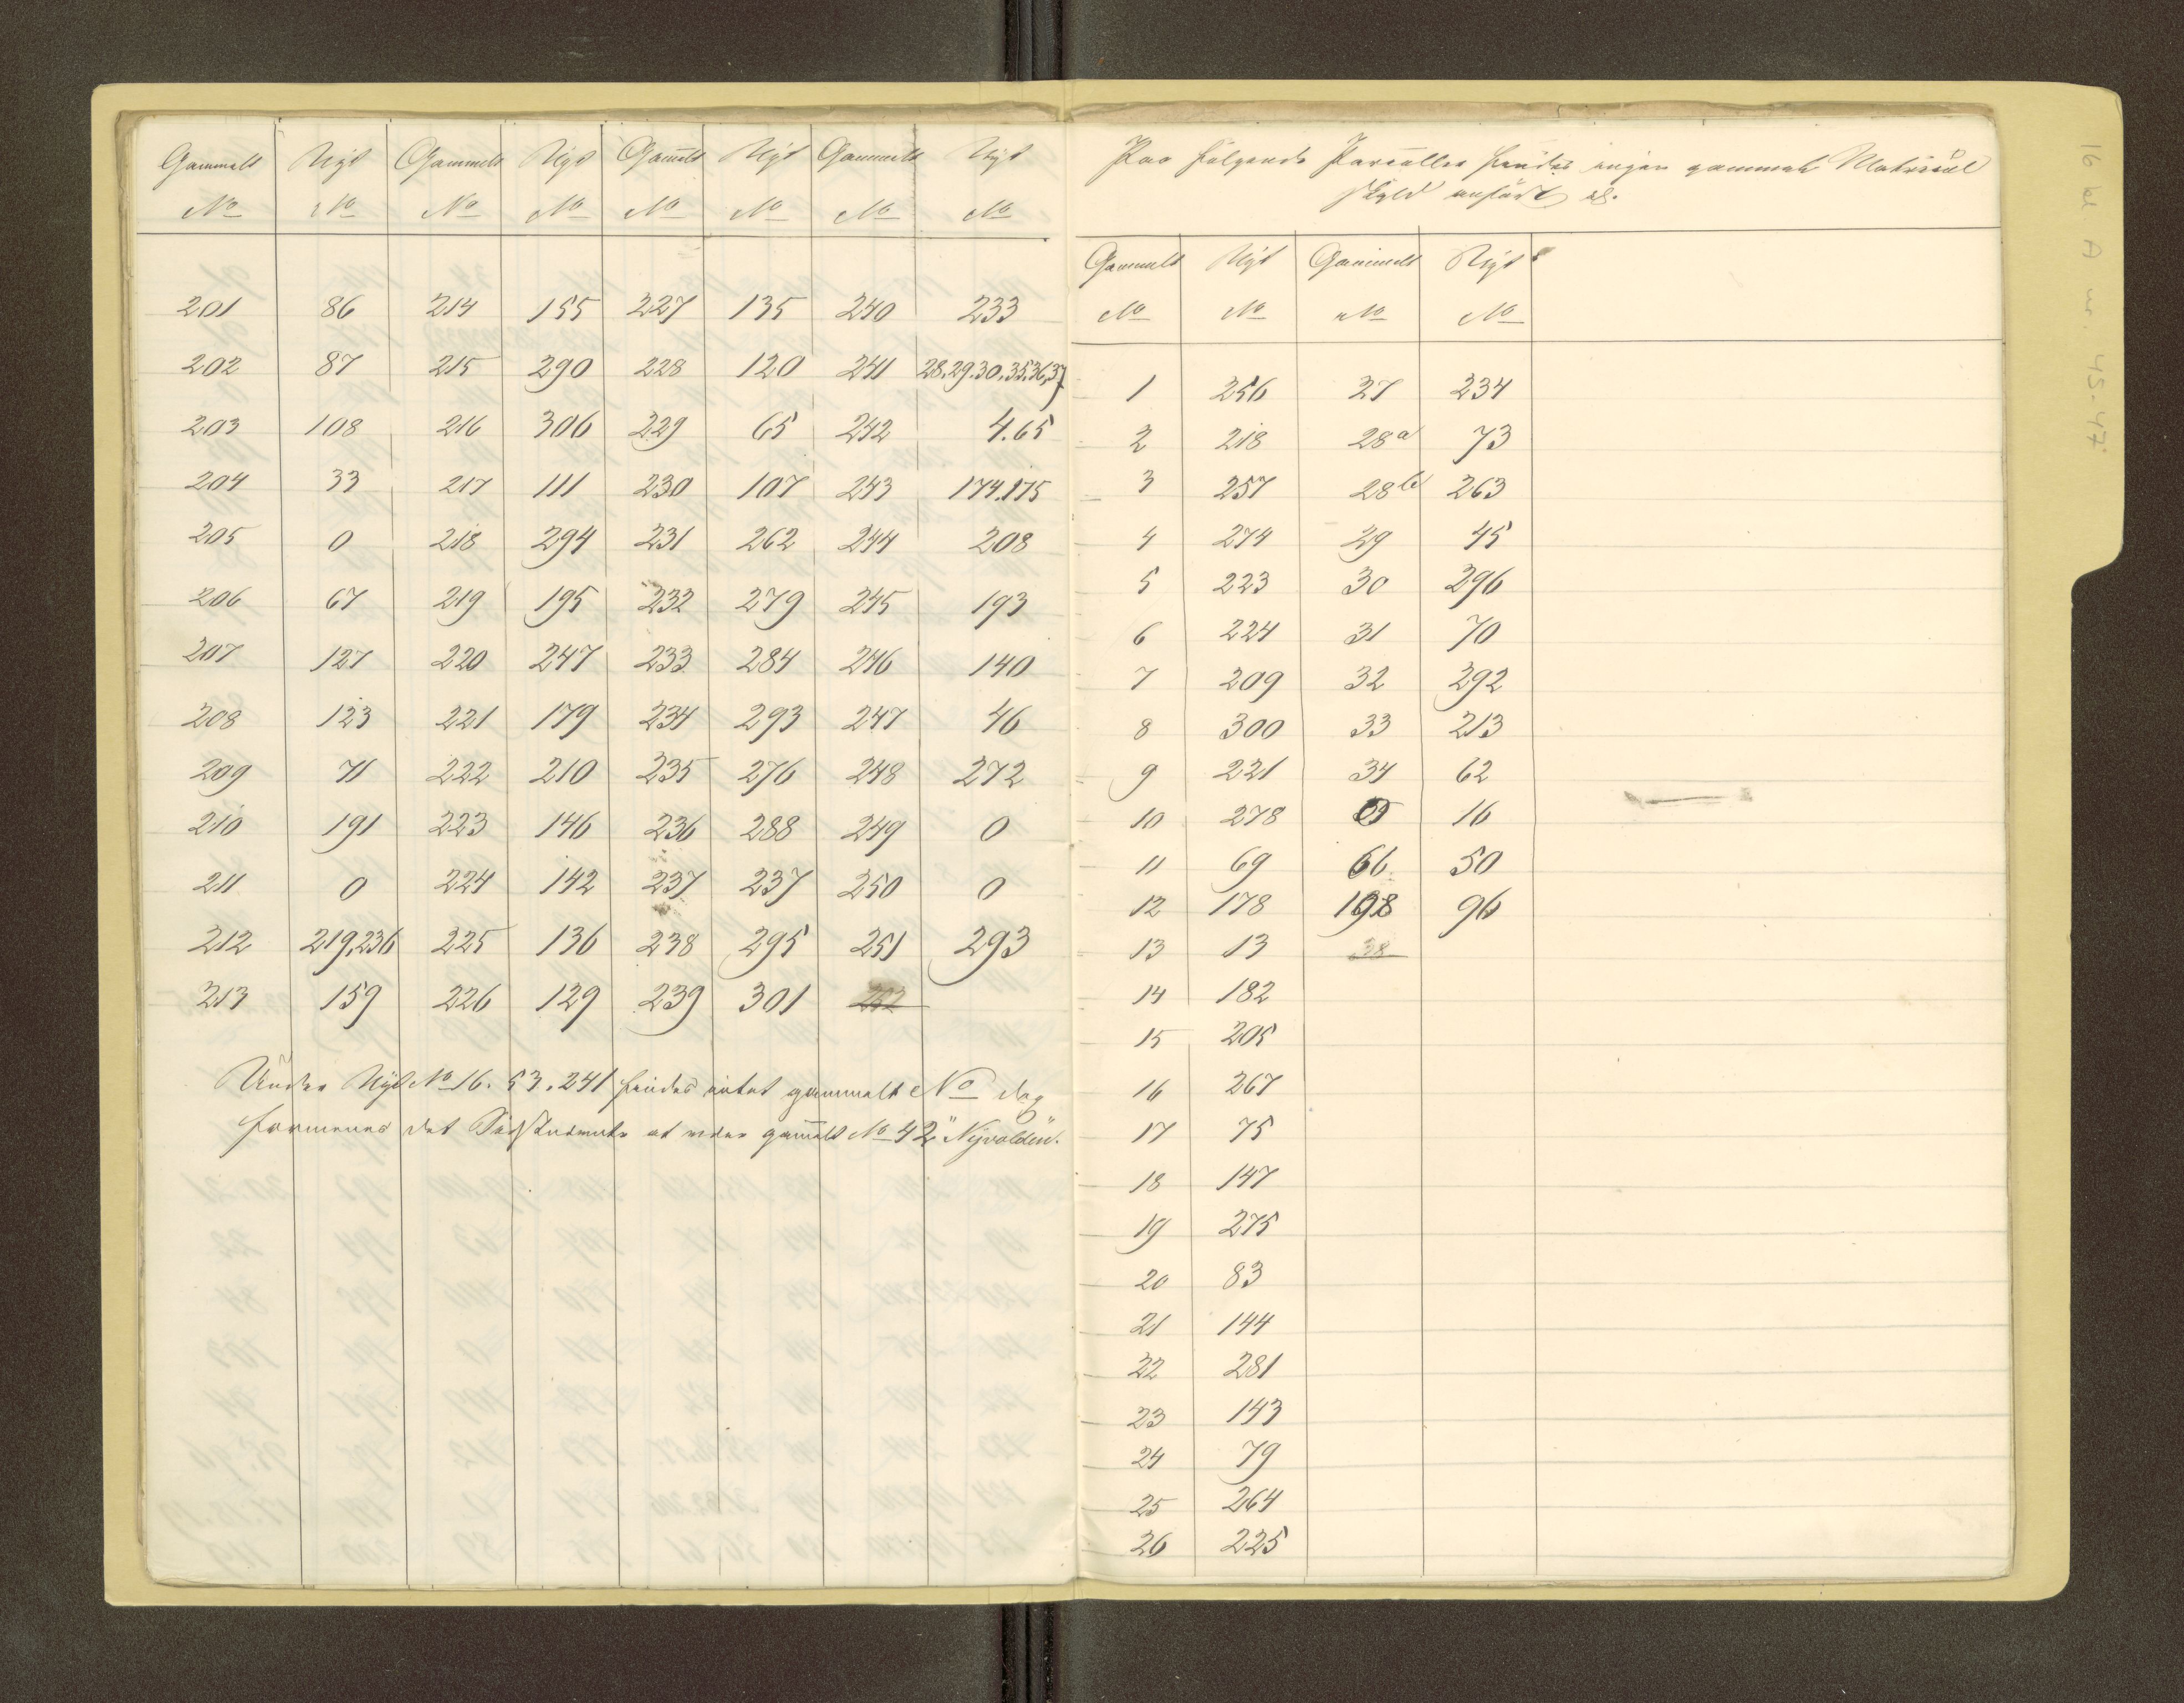 Gammelt Nyt Gammelt Nyt Gam̄elt Nyt Gammelt Nyt
No No No No No No No No
201 86 214 155 227 135 240 233
202 87 215 290 228 120 241 28.29.30.35.36.37
203 108 216 306 229 65 242 4.65
204 33 217 111 230 107 243 174.175
205 0 218 294 231 262 244 208
206 67 219 195 232 279 245 193
207 127 220 247 233 284 246 140
208 123 221 179 234 293 247 46
209 71 222 210 235 276 248 272
210 191 223 146 236 288 249 0
211 0 224 142 237 237 250 0
212 219.236 225 136 238 295 251 293
213 159 226 129 239 301 252
Under Nyt No 16. 53. 241 findes intet gammelt No dog
formenes det Sidstnævnte at være gam̄elt No 42 "Nyvolden".
Paa følgende Parceller findes ingen gammel Matricul
skyld anført
Gammelt Nyt Gammelt Nyt
No No No No
1 256 27 234
2 218 28a 73
3 257 28b 263
4 274 29 45
5 223 30 296
6 224 31 70
7 209 32 292
8 300 33 213
9 221 34 62
10 278 16
11 69 66 50
12 178 198 96
13 13 38
14 182
15 205
16 267
17 75
18 147
19 275
20 83
21 144
22 281
23 143
24 79
25 264
26 225
16 d A nr. 45-47